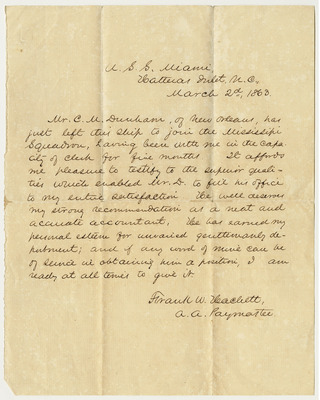 U. S. S. Miami,
Hatteras Inlet, N. C.,
March 2nd, 1863.
Mr. C. M. Dunham, of New Orleans, has
just left this ship to join the Mississippi
Squadron, having been with me in the capa-
city of clerk for five months. It affords
me pleasure to testify to the superior quali-
ties which enabled Mr. D. to fill his office
to my entire satisfaction. He well deserves
my strong recommendation as a neat and
accurate accountant. He has earned my
personal esteem for unvaried gentlemanly de-
portment; and if any word of mine can be
of service in obtaining him a position, I am
ready at all times to give it.
Frank W. Hackett,
A. A. Paymaster.